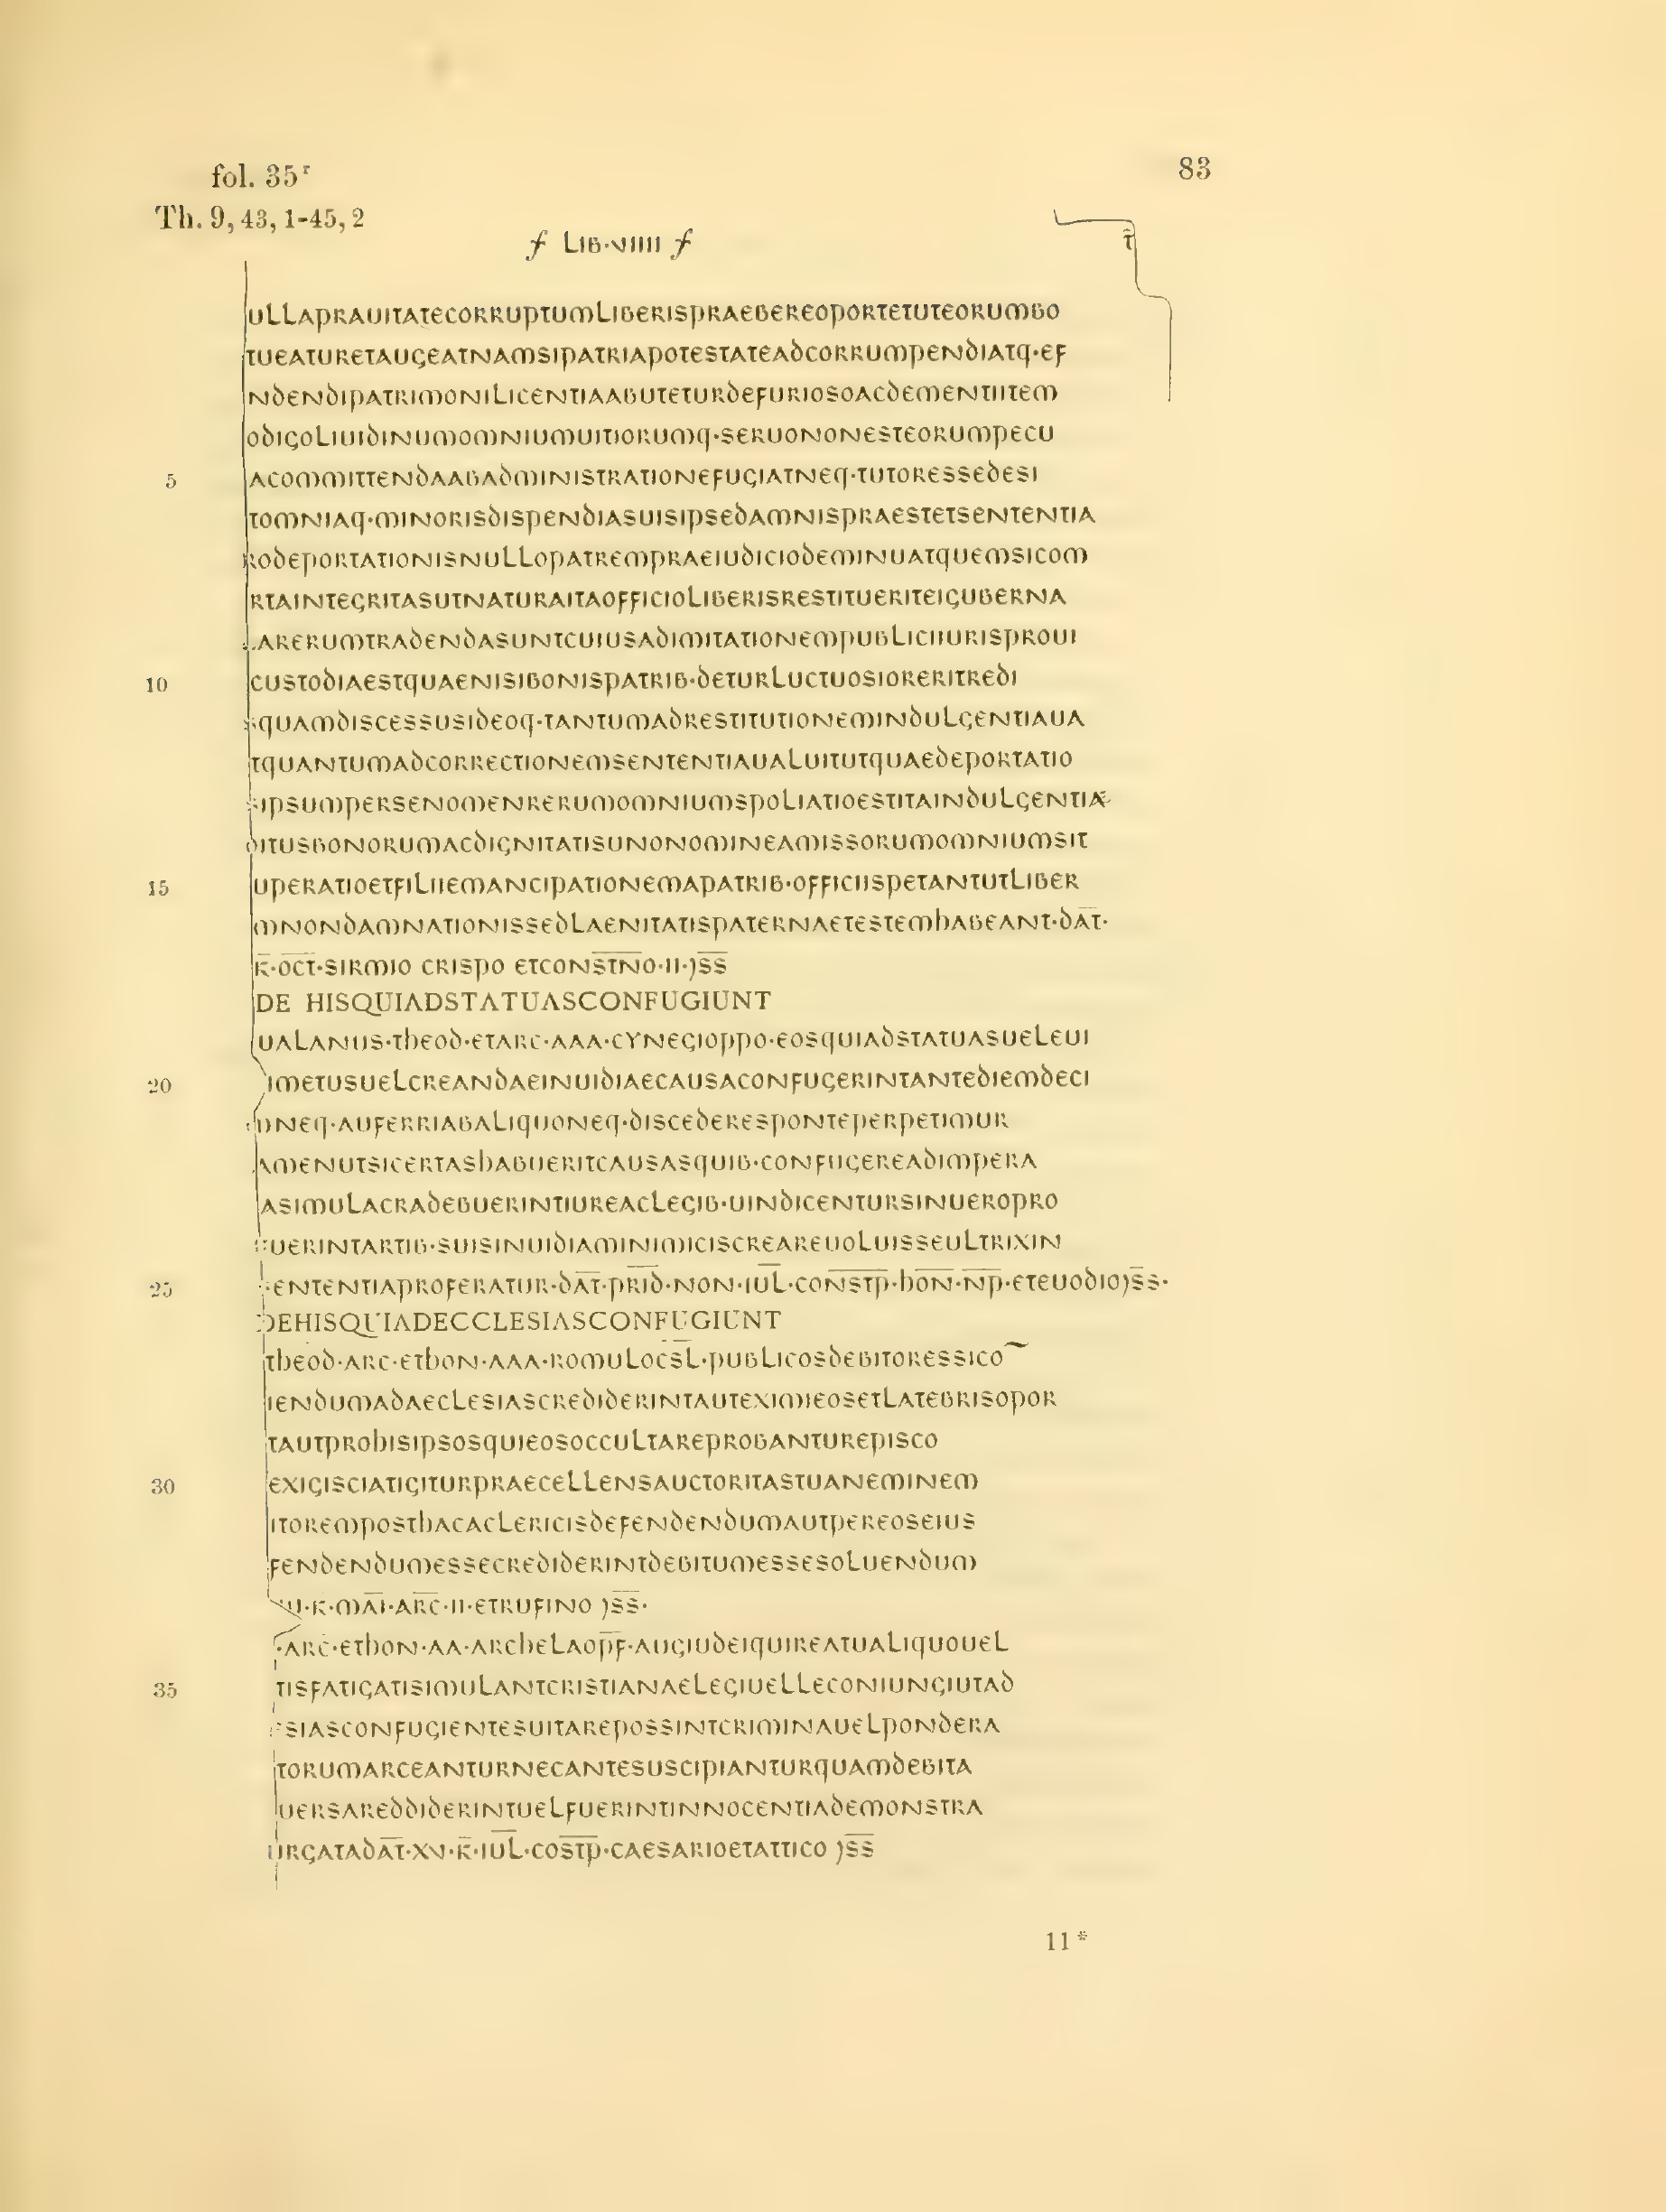 fol. 35r
83
Th. 9, 43, 1-45, 2
ƒ LIB·VIIII ƒ
T̄
ULLAPRAUITATECORRUPTUMLIBERISPRAEBEREOPORTETUTEORUMBO
TUEATURETAUGEATNAMSIPATRIAPOTESTATEADCORRUMPENDIATQ·EF
NDENDIPATRIMONILICENTIAABUTETURDEFURIOSOACDEMENTIITEM
ODIGOLIUIDINUMOMNIUMUITIORUMQ·SERUONONESTEORUMPECU
5 ACOMMITTENDAABADMINISTRATIONEFUGIATNEQ·TUTORESSEDESI
TOMNIAQ·MINORISDISPENDIASUISIPSEDAMNISPRAESTETSENTENTIA
RODEPORTATIONISNULLOPATREMPRAEIUDICIODEMINUATQUEMSICOM
RTAINTEGRITASUTNATURAITAOFFICIOLIBERISRESTITUERITEIGUBERNA
ARERUMTRADENDASUNTCUIUSADIMITATIONEMPUBLICIIURISPROUI
10 CUSTODIAESTQUAENISIBONISPATRIB·DETURLUCTUOSIORERITREDI
QUAMDISCESSUSIDEOQ·TANTUMADRESTITUTIONEMINDULGENTIAUA
TQUANTUMADCORRECTIONEMSENTENTIAUALUITUTQUAEDEPORTATIO
IPSUMPERSENOMENRERUMOMNIUMSPOLIATIOESTITAINDULGENTIAE
DITUSBONORUMACDIGNITATISUNONOMINEAMISSORUMOMNIUMSIT
15 UPERATIOETFILIIEMANCIPATIONEMAPATRIB·OFFICIISPETANTUTLIBER
MNONDAMNATIONISSEDLAENITATISPATERNAETESTEMHABEANT·DA̅T̅·
K̅·O̅C̅T̅·SIRMIO CRISPO ETCONS̅T̅N̅O·II·)S̅S̅
DE HISQUIADSTATUASCONFUGIUNT
UALANIIS·THEOD·ETARC·AAA·CYNEGIOPPO·EOSQUIADSTATUASUELEUI
20 IMETUSUELCREANDAEINUIDIAECAUSACONFUGERINTANTEDIEMDECI
NNEQ·AUFERRIABALIQUONEQ·DISCEDERESPONTEPERPETIMUR
AMENUTSICERTASHABUERITCAUSASQUIB·CONFUGEREADIMPERA
ASIMULACRADEBUERINTIUREACLEGIB·UINDICENTURSINUEROPRO
UERINTARTIB·SUISINUIDIAMINIMICISCREAREUOLUISSEULTRIXIN
25 ENTENTIAPROFERATUR·DA̅T̅·PR̅I̅D̅·NON·IU̅L̅·CON̅S̅T̅P̅·HO̅N̅·N̅P̅·ETEUODIO)S̅S·
DEHISQUIADECCLESIASCONFUGIUNT
THEOD·ARC·ETHON·AAA·ROMULOCS̅L̅·PUBLICOSDEBITORESSICO͠
IENDUMADAECLESIASCREDIDERINTAUTEXIMIEOSETLATEBRISOPOR
TAUTPROHISIPSOSQUIEOSOCCULTAREPROBANTUREPISCO
30 EXIGISCIATIGITURPRAECELLENSAUCTORITASTUANEMINEM
ITOREMPOSTHACACLERICISDEFENDENDUMAUTPEREOSEIUS
FENDENDUMESSECREDIDERINTDEBITUMESSESOLUENDUM
U·K·MA̅I̅·AR̅C̅·II·ETRUFINO )S̅S̅·
ARC·ETHON·AA·ARCHELAOP̅F̅·AUGIUDEIQUIREATUALIQUOUEL
35 TISFATIGATISIMULANTCRISTIANAELEGIUELLECONIUNGIUTAD
SIASCONFUGIENTESUITAREPOSSINTCRIMINAUELPONDERA
TORUMARCEANTURNECANTESUSCIPIANTURQUAMDEBITA
UERSAREDDIDERINTUELFUERINTINNOCENTIADEMONSTRA
URGATADA̅T̅·XV·K̅·IU̅L̅·COS̅T̅P̅·CAESARIOETATTICO )S̅S̅
11 *